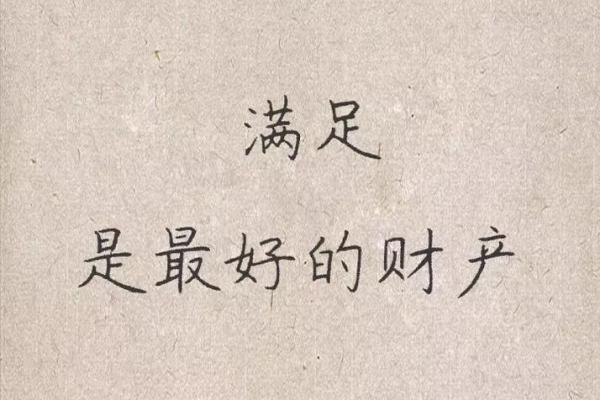 满足
是最好的财产